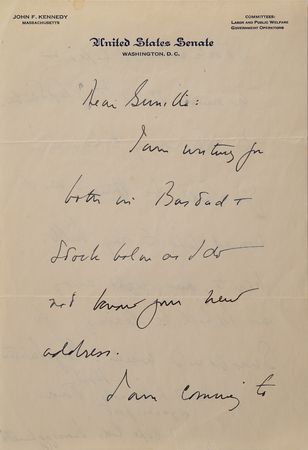 JOHN F. KENNEDY
MASSACHUSETTS
COMMITTEES:
LABOR AND PUBLIC WELFARE
GOVERNMENT OPERATIONS
United States Senate
WASHINGTON, D. C.
Dear Gunilla:
I am writing you
both in Bastad +
Stockholm as I do
not know your new
address.
I am coming to